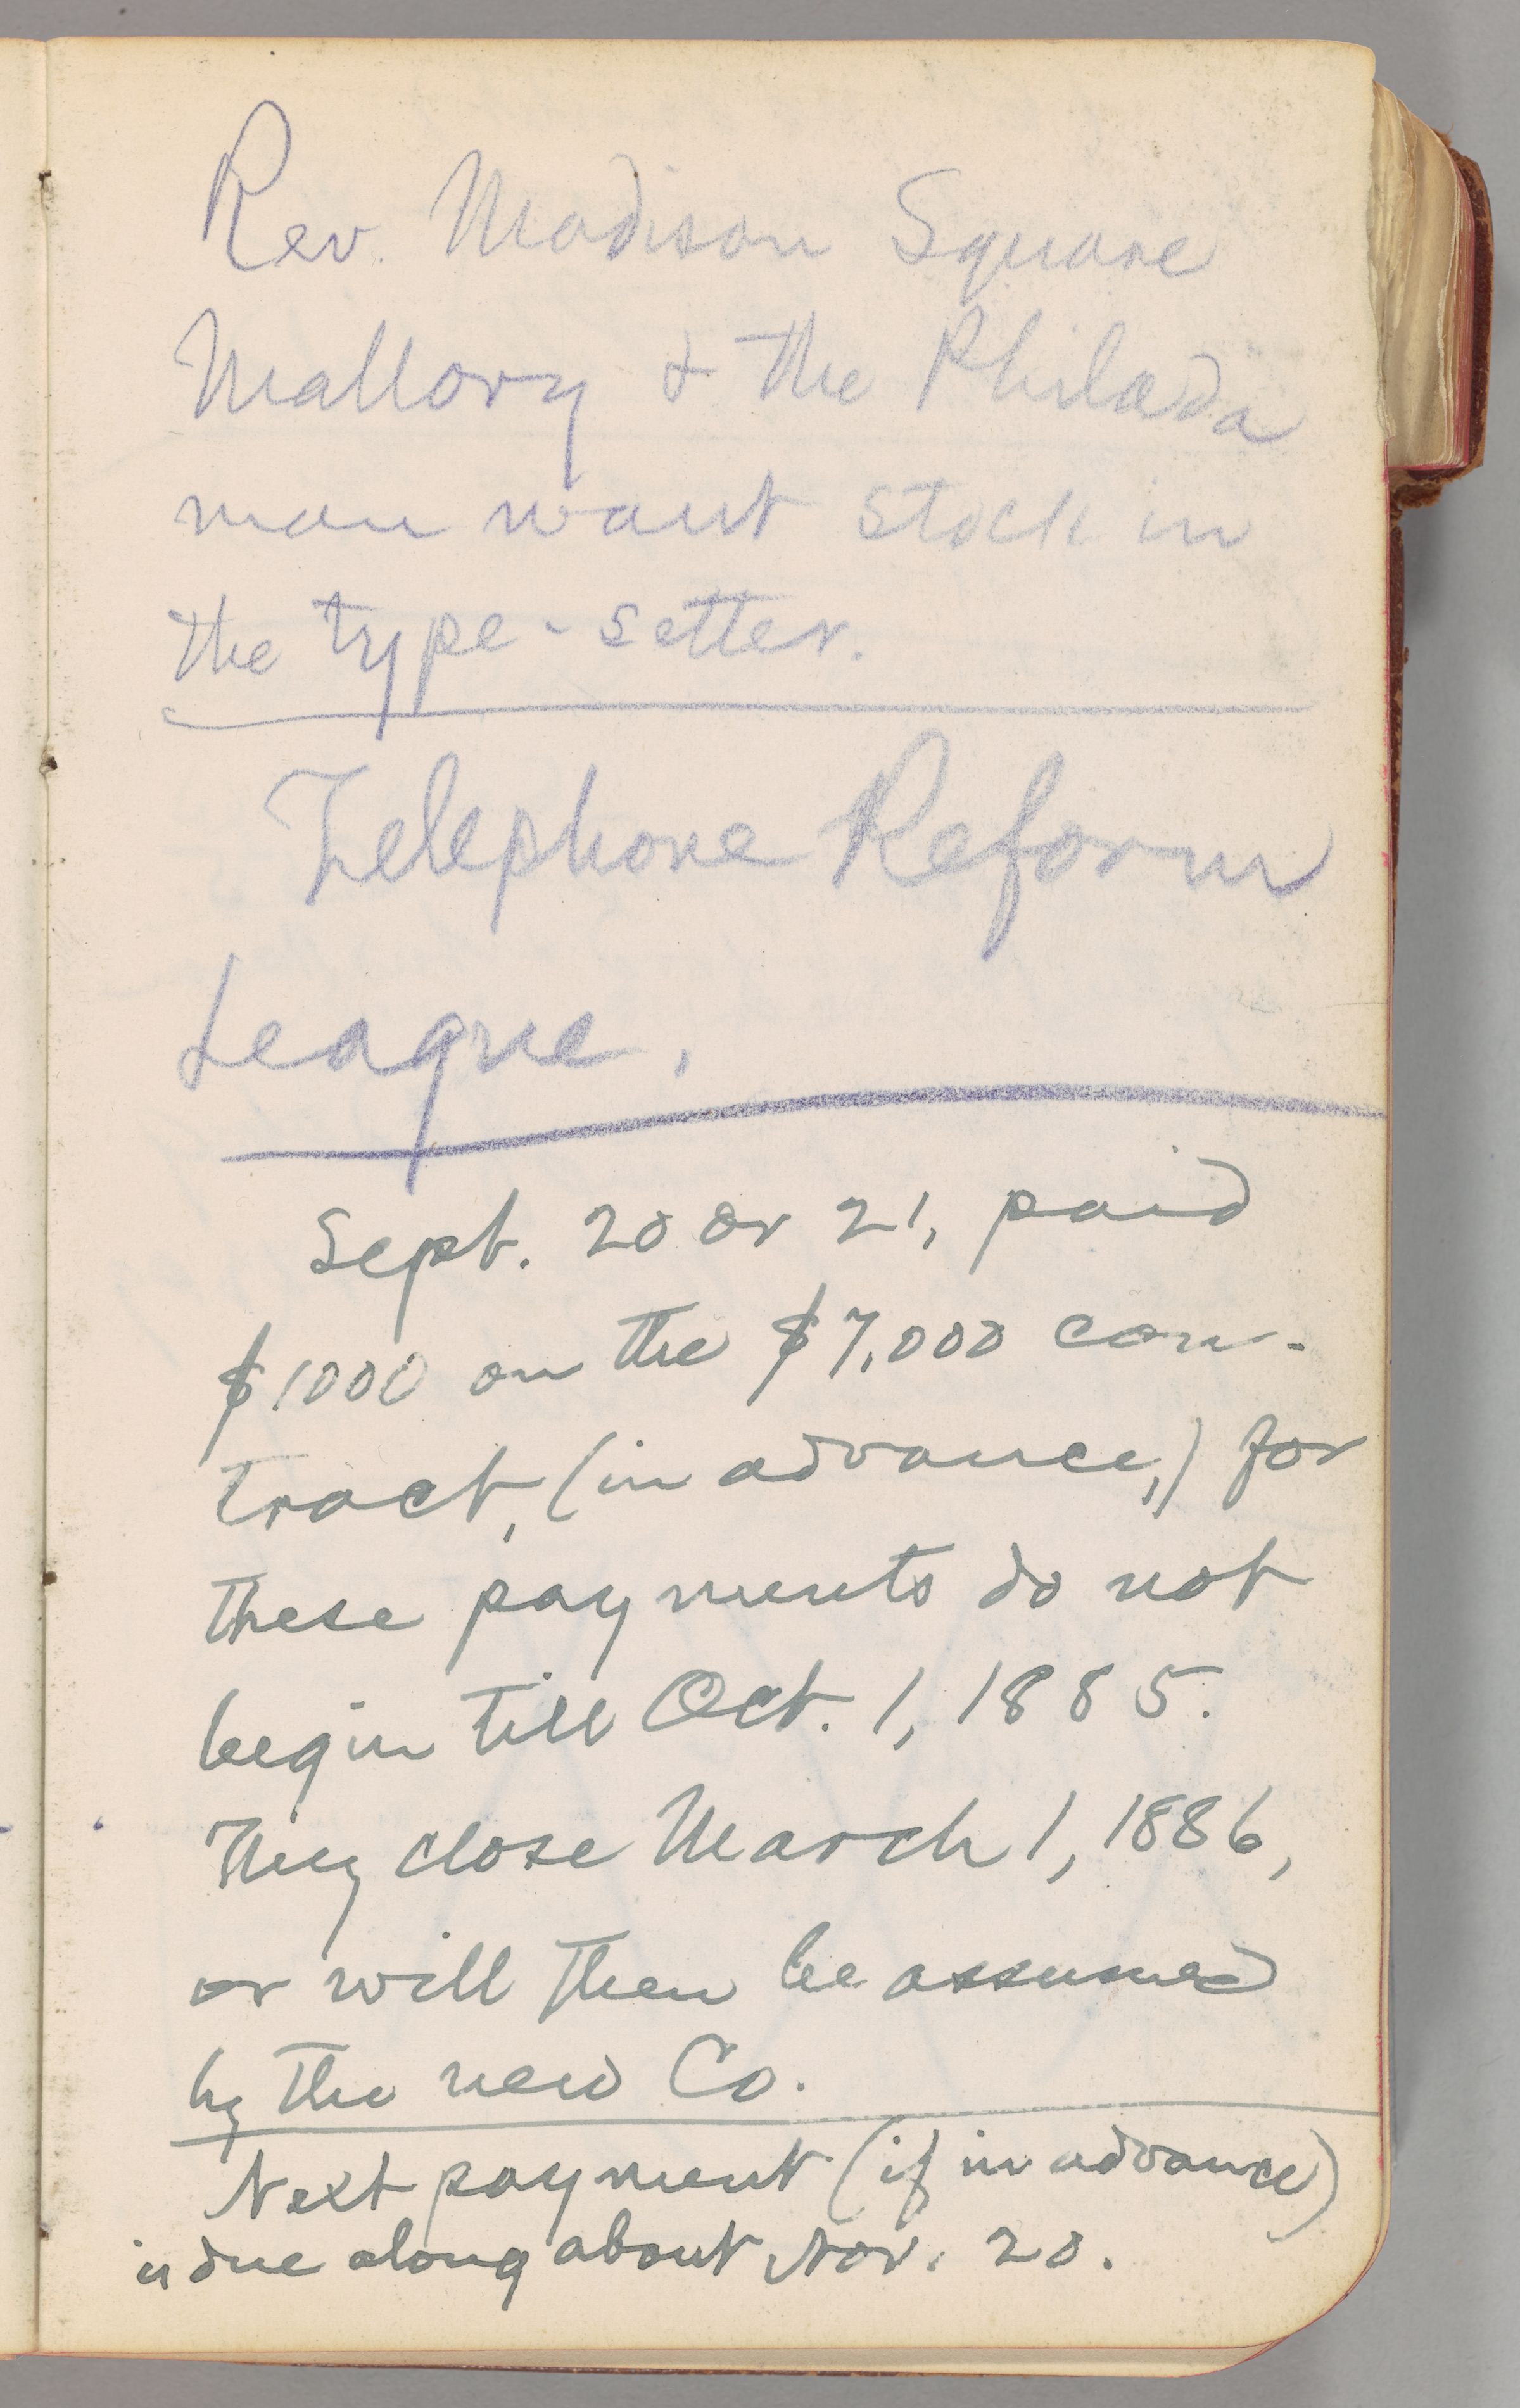 Rev. Madison Square
Mallory & the Philada
man want stock in
the type-setter.
Telephone Reform
League.
Sept. 20 or 21, paid
$1000 on the $7,000 con-
tract, (in advance,) for
these payments do not
begin till Oct. 1, 1885.
They close March 1, 1886,
or will then be assumed
by the new Co.
Next payment (if in advance)
is due along about Nov. 20.